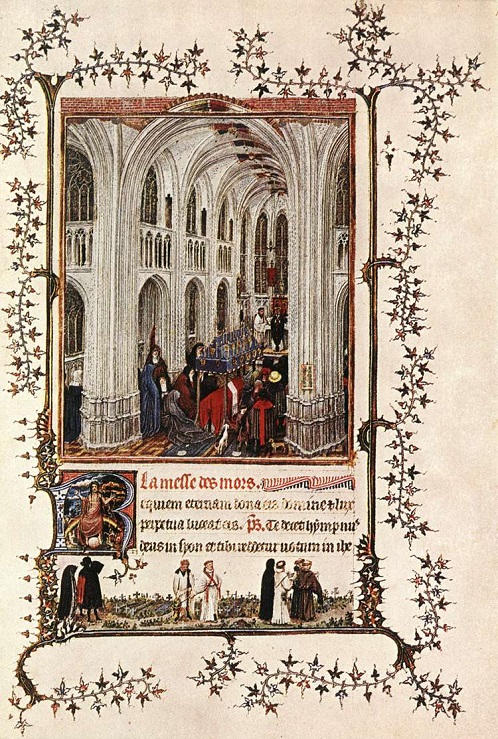 La messe des mors.
Requiem eternam dona eis domine ⁊ lux
perpetua luceat eis. Ps. Te decet hympnus
deus in syon et tibi reddetur votum in ihe